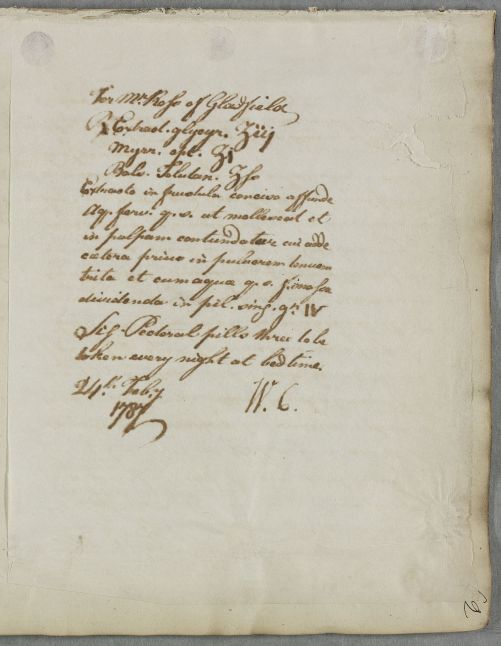 For Mr. Ross of Gladfield
℞ Extract. glycyr. ʒiij
Myrr. opt. ʒi
Bals. Tolutan. ʒſs
Extracto in frustula conciso affunde
Aq. ferv. q. s. ut mollescat et
in pulpam contundatur cui adde
cætera prius in pulverem tenuem
trita et cum aqua q. s. f. massa
dividenda in pil. sing. gr. IV
Sig. Pectoral pills three to be
taken every night at bed time.
24th. Feb.y W. C.
1787